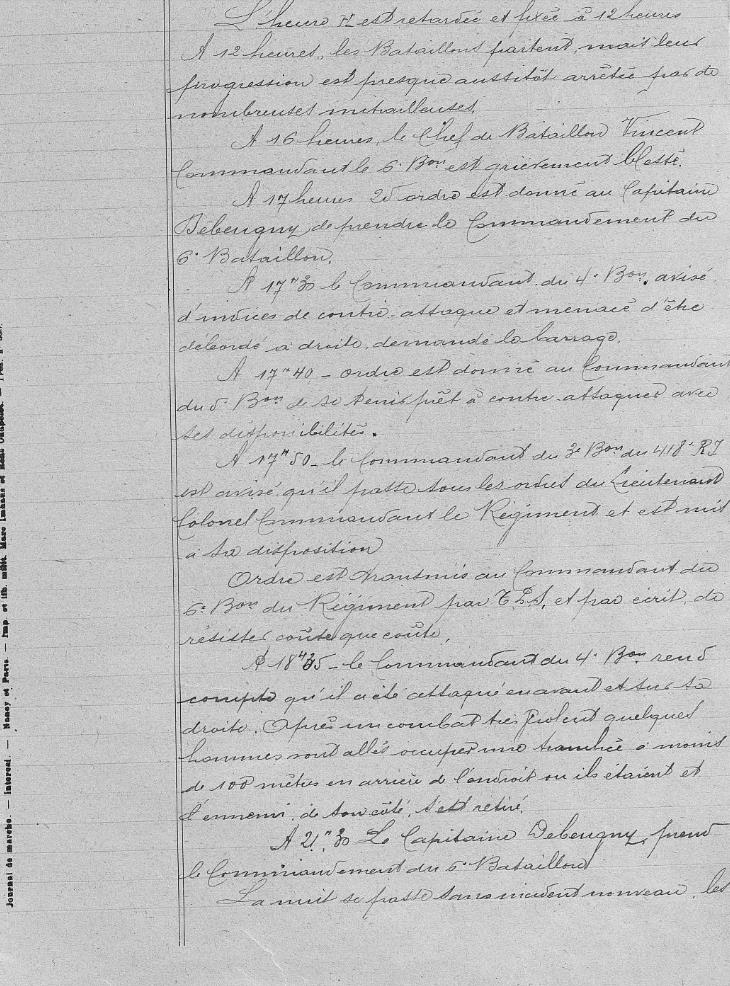 L'heure H est retardée et fixée à 12 heures
A 12 heures, les Bataillons partent, mais leur
progression est presque aussitôt arrêtée par de
nombreuses mitrailleuses.
A 16 heures, le Chef de Bataillon Vincent
Commandant le 6e Bon est grièvement blessé.
A 17 heures 25 ordre est donné au Capitaine
Debeugny de prendre le Commandement du
6e Bataillon.
A 17h30 le Commandant du 4e Bon. avisé
d'indices de contre-attaque et menacé d'être
débordé à droite, demande le barrage.
A 17h40 - ordre est donné au Commandant
du 5e Bon de se tenir prêt à contre-attaquer avec
ses disponibilités.
A 17h50 - le Commandant du 3e Bon du 418e RI
est avisé qu'il passe sous les ordres du Lieutenant
Colonel Commandant le Régiment et est mis
à sa disposition
Ordre est transmis au Commandant du
6e Bon du Régiment par T.P.S. et par écrit, de
résister coûte que coûte.
A 18h35 - le Commandant du 4e Bon rend
compte qu'il a été attaqué en avant et sur sa
droite. Après un combat très violent quelques
hommes sont allés occuper une tranchée à moins
de 100 mètres en arrière de l'endroit où ils étaient et
l'ennemi, de son côté, s'est retiré.
A 21h30 Le Capitaine Debeugny, prend
le Commandement du 6e Bataillon
La nuit se passe sans incident nouveau, les
Journal de marche. — Intercal. — Nancy et Paris. — Imp. et lib. milit. Marc Imhaus et René Chapelot. —